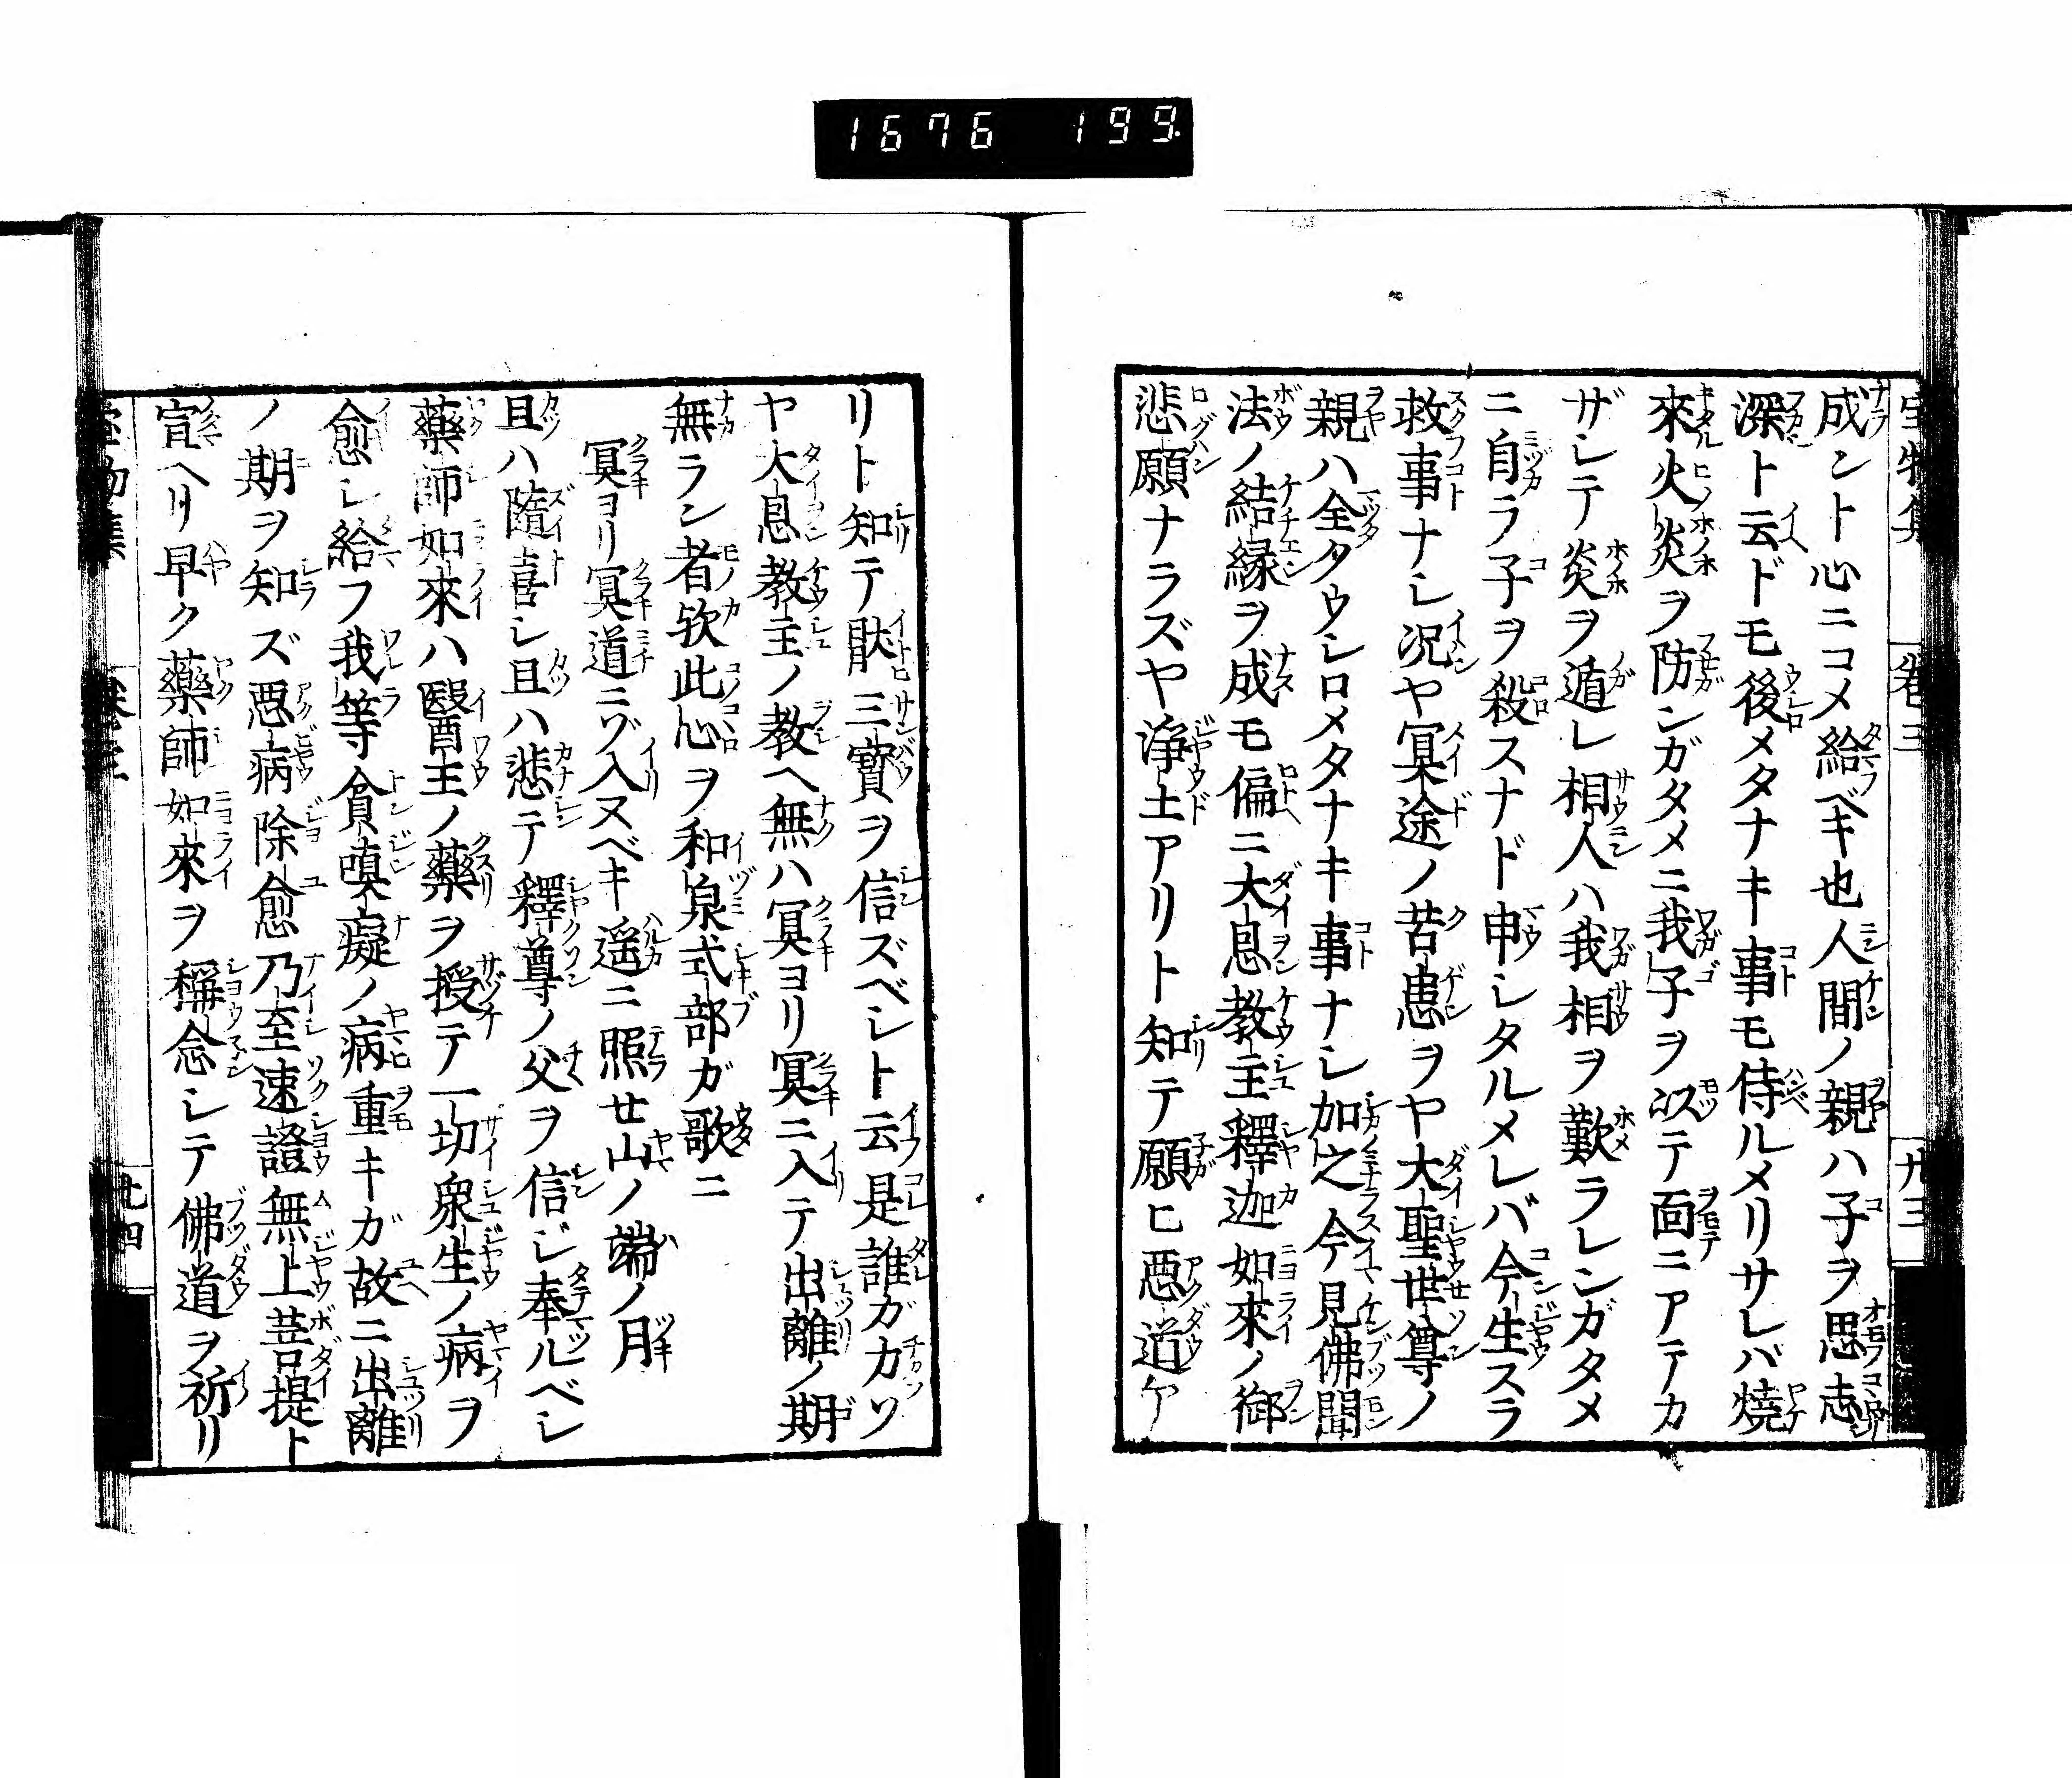 1676 199.
宝物集 巻三 九三
成ント心ニコメ給ベキ也人間ノ親ハ子ヲ思志
深ト云ドモ後メタナキ事モ侍ルメリサレバ焼
來火炎ヲ防ンガタメニ我子ヲ以テ面ニアテカ
ザレテ炎ヲ遁レ相人ハ我相ヲ歎ラレンガタメ
ニ自ラ子ヲ殺スナド申シタルメレバ今生スラ
救事ナシ况ヤ冥途ノ苦患ヲヤ大聖世尊ノ
親ハ全タウシロメタナキ事ナシ加之今見佛聞
法ノ結縁ヲ成モ偏ニ大恩教主釋迦如來ノ御
悲願ナラズヤ浄土アリト知テ願ヒ惡道ケ
リト知テ猒三寳ヲ信ズベシト云是誰ガカソ
ヤ大恩教主ノ教ヘ無ハ冥ヨリ冥ニ入テ出離ノ期
無ラン者欤此心ヲ和泉式部ガ歌ニ
冥ヨリ冥道ニゾ入ヌベキ遥ニ照セ山ノ端ノ月
且ハ隨喜シ且ハ悲テ釋尊ノ父ヲ信ジ奉ルベシ
藥師如來ハ醫王ノ藥ヲ授テ一切衆生ノ病ヲ
愈シ給フ我等貪嗔癡ノ病重キガ故ニ出離
ノ期ヲ知ズ惡病除愈乃至速證無上菩提ト
宣ヘリ早ク藥師如來ヲ稱念シテ佛道ヲ祈リ
宝物集 巻三 九四